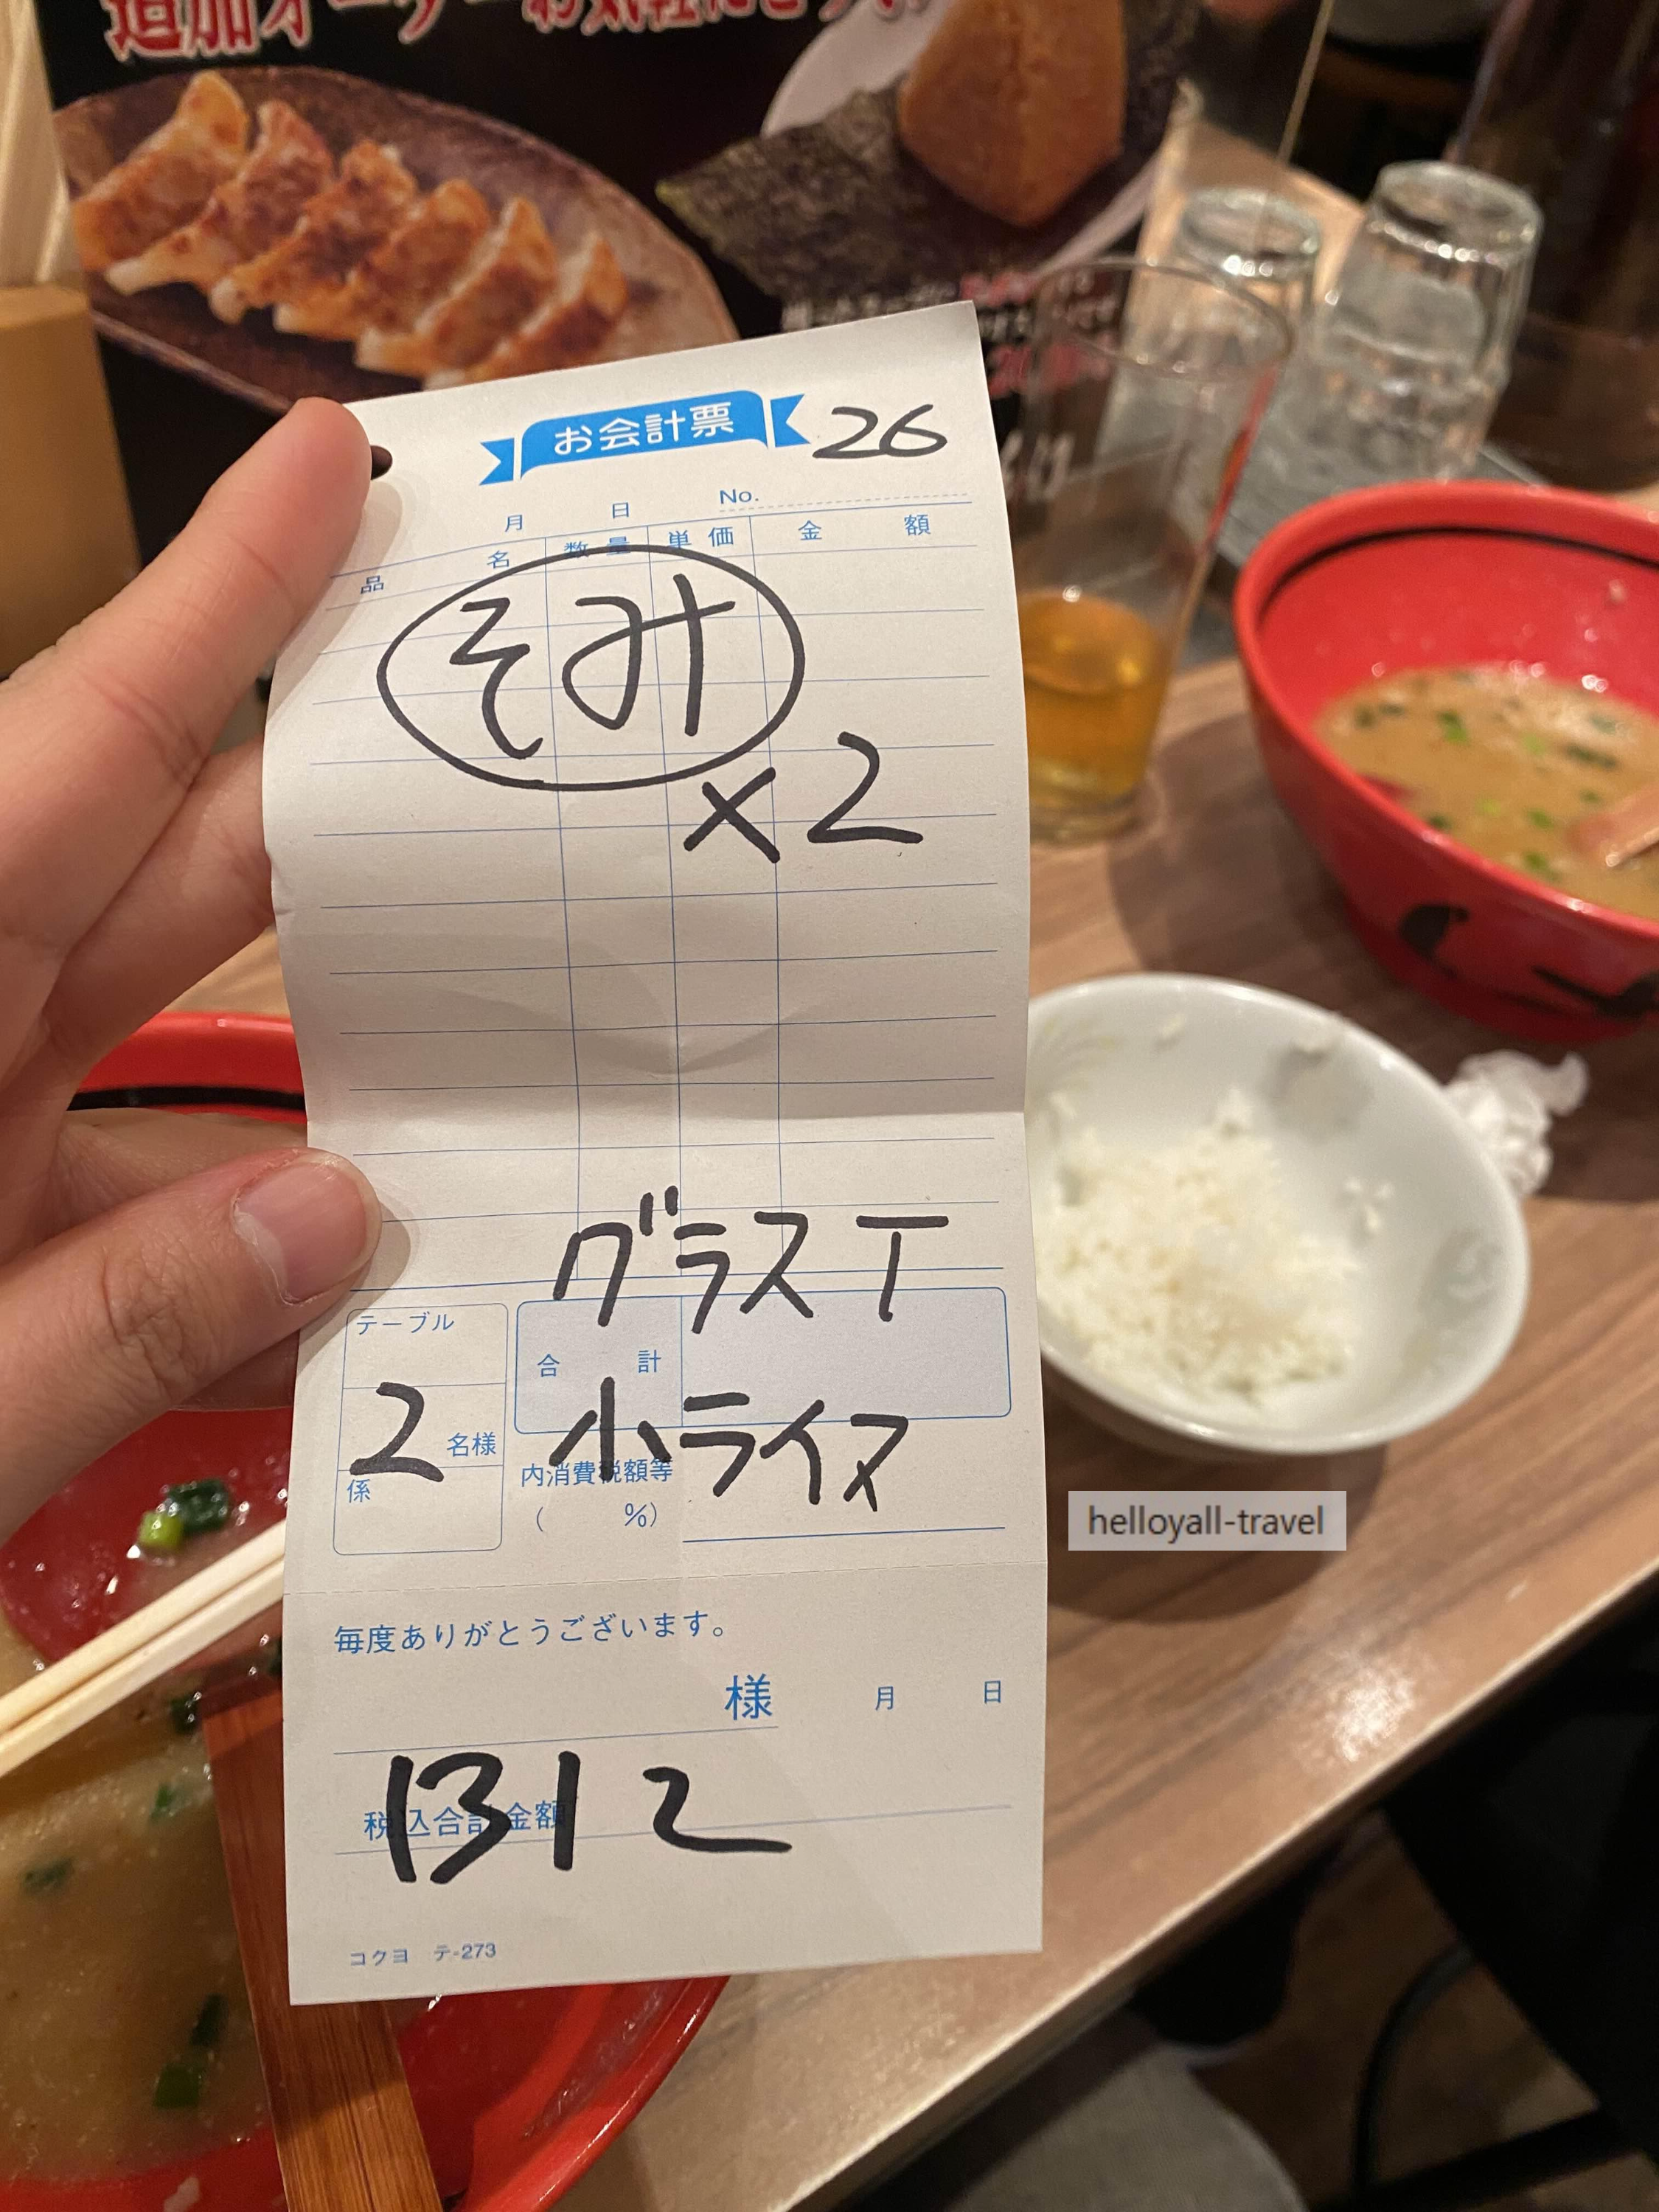 追加オーダーお気軽にどうぞ
お会計票 26
月 日 No.
品 名 数 量 単 価 金 額
そみ
×2
グラス T
テーブル
合 計
2 名様
小ライス
係
内消費税額等
( %)
helloyall-travel
毎度ありがとうございます。
様 月 日
1312
税込合計金額
コクヨ テ-273